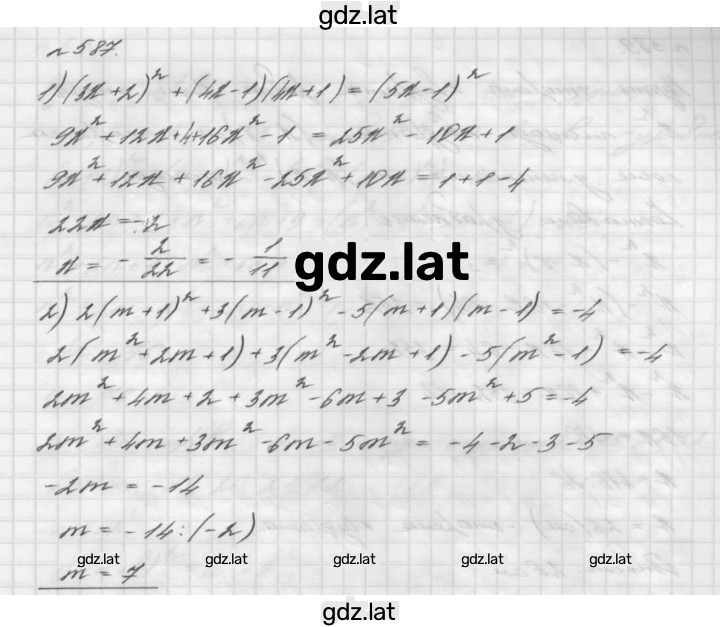 gdz.lat
n 587.
1) (3x+2)² + (4x-1)(4x+1) = (5x-1)²
9x² + 12x + 4 + 16x² - 1 = 25x² - 10x + 1
9x² + 12x + 16x² - 25x² + 10x = 1 + 1 - 4
22x = -2
x = - 2/22 = - 1/11
gdz.lat
2) 2(m+1)² + 3(m-1)² - 5(m+1)(m-1) = -4
2(m² + 2m + 1) + 3(m² - 2m + 1) - 5(m² - 1) = -4
2m² + 4m + 2 + 3m² - 6m + 3 - 5m² + 5 = -4
2m² + 4m + 3m² - 6m - 5m² = -4 - 2 - 3 - 5
-2m = -14
m = -14 : (-2)
gdz.lat gdz.lat gdz.lat gdz.lat gdz.lat
m = 7
gdz.lat